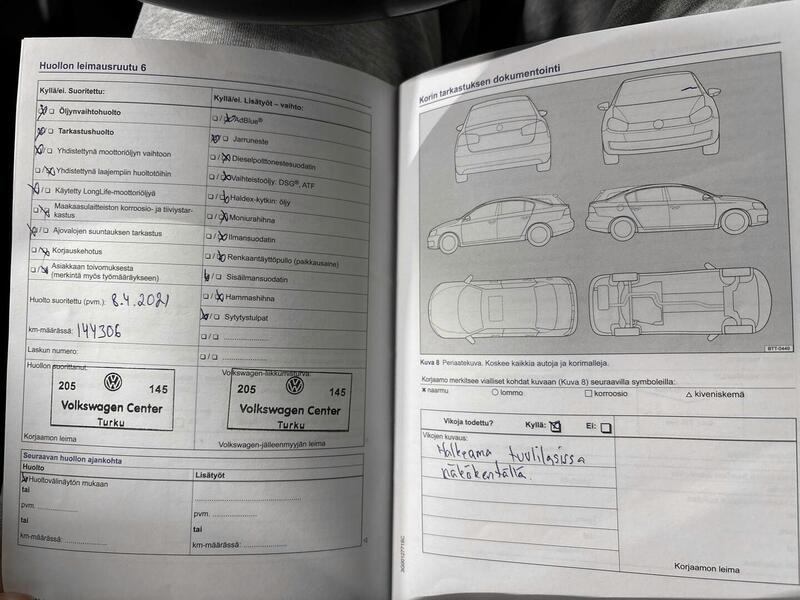 Huollon leimausruutu 6
Kyllä/ei. Suoritettu:
Öljynvaihtohuolto
Tarkastushuolto
Yhdistettynä moottoriöljyn vaihtoon
Yhdistettynä laajempiin huoltotöihin
Käytetty LongLife-moottoriöljyä
Maakaasulaitteiston korroosio- ja tiiviystar-
kastus
Ajovalojen suuntauksen tarkastus
Korjauskehotus
Asiakkaan toivomuksesta
(merkintä myös työmääräykseen)
Huolto suoritettu (pvm.): 8.4.2021
km-määrässä: 144306
Laskun numero:
Huollon suorittanut:
205 145
Volkswagen Center
Turku
Korjaamon leima
Kyllä/ei. Lisätyöt – vaihto:
AdBlue®
Jarruneste
Dieselpolttonestesuodatin
Vaihteistoöljy: DSG®, ATF
Haldex-kytkin: öljy
Moniurahihna
Ilmansuodatin
Renkaantäyttöpullo (paikkausaine)
Sisäilmansuodatin
Hammashihna
Sytytystulpat
....................
....................
Volkswagen-liikkumisturva:
205 145
Volkswagen Center
Turku
Volkswagen-jälleenmyyjän leima
Seuraavan huollon ajankohta
Huolto
Huoltovälinäytön mukaan
tai
pvm. ....................
tai
km-määrässä: ....................
Lisätyöt
....................
pvm. ....................
tai
km-määrässä: ....................
Korin tarkastuksen dokumentointi
BTT-0449
Kuva 8 Periaatekuva. Koskee kaikkia autoja ja korimalleja.
Korjaamo merkitsee vialliset kohdat kuvaan (Kuva 8) seuraavilla symboleilla:
naarmu lommo korroosio kiveniskemä
Vikoja todettu? Kyllä: Ei:
Vikojen kuvaus:
Halkeama tuulilasissa
näkökentällä.
Korjaamon leima
3G0012771SC